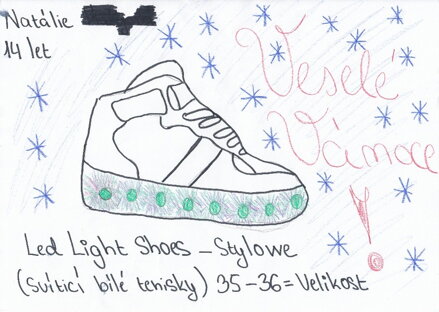 Natálie
14 let
Veselé
Vánoce
!
Led Light Shoes – Stylowe
(svítící bílé tenisky) 35 – 36 = Velikost